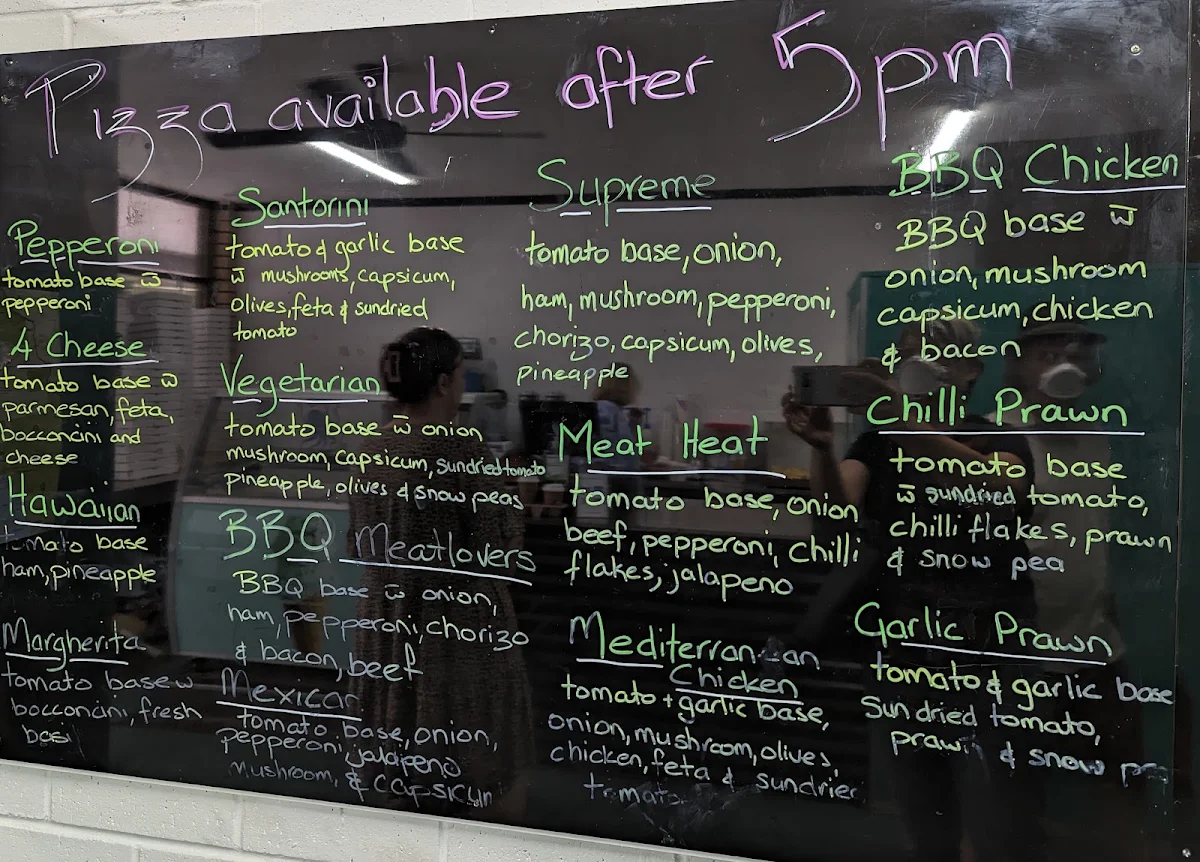 Pizza available after 5pm
Pepperoni
tomato base w̅
pepperoni
4 Cheese
tomato base w̅
parmesan, feta,
bocconcini and
cheese
Hawaiian
tomato base
ham, pineapple
Margherita
tomato base w
bocconcini, fresh
basil
Santorini
tomato & garlic base
w̅ mushrooms, capsicum,
olives, feta & sundried
tomato
Vegetarian
tomato base w̅ onion
mushroom, capsicum, sundried tomato
pineapple, olives & snow peas
BBQ Meatlovers
BBQ base w̅ onion,
ham, pepperoni, chorizo
& bacon, beef
Mexican
tomato base, onion,
pepperoni, jalapeno
mushroom, & capsicum
Supreme
tomato base, onion,
ham, mushroom, pepperoni,
chorizo, capsicum, olives,
pineapple
Meat Heat
tomato base, onion
beef, pepperoni, chilli
flakes, jalapeno
Mediterranean
Chicken
tomato + garlic base,
onion, mushroom, olives,
chicken, feta & sundried
tomato
BBQ Chicken
BBQ base w̅
onion, mushroom
capsicum, chicken
& bacon
Chilli Prawn
tomato base
w̅ sundried tomato,
chilli flakes, prawn
& snow pea
Garlic Prawn
tomato & garlic base
Sun dried tomato,
prawn & snow